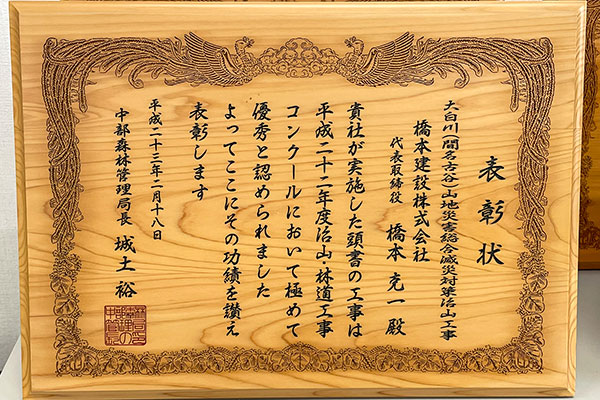 表彰状
大白川(間名古谷)山地災害総合減災対策治山工事
橋本建設株式会社
代表取締役 橋本充一殿
貴社が実施した頭書の工事は
平成二十二年度治山・林道工事
コンクールにおいて極めて
優秀と認められました
よってここにその功績を讃え
表彰します
平成二十三年二月十八日
中部森林管理局長 城土裕